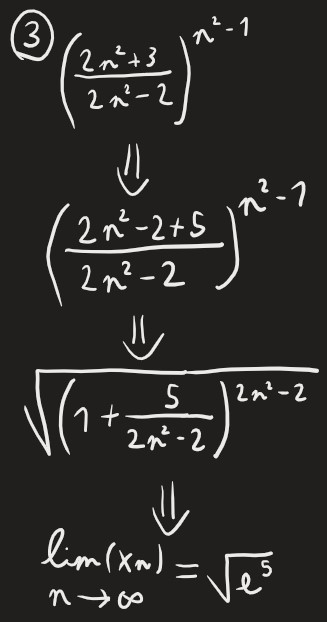 ③ ((2n²+3)/(2n²-2))^(n²-1)
⇓
((2n²-2+5)/(2n²-2))^(n²-1)
⇓
√((1+5/(2n²-2))^(2n²-2))
⇓
lim(xn) = √e⁵
n→∞